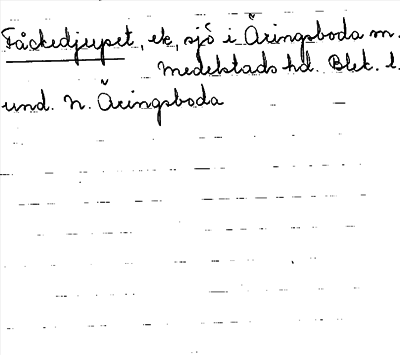 Fåckedjupet, ek, sjö i Åringsboda m.
Medelstads hd. Blek. l.
und. N. Åringsboda